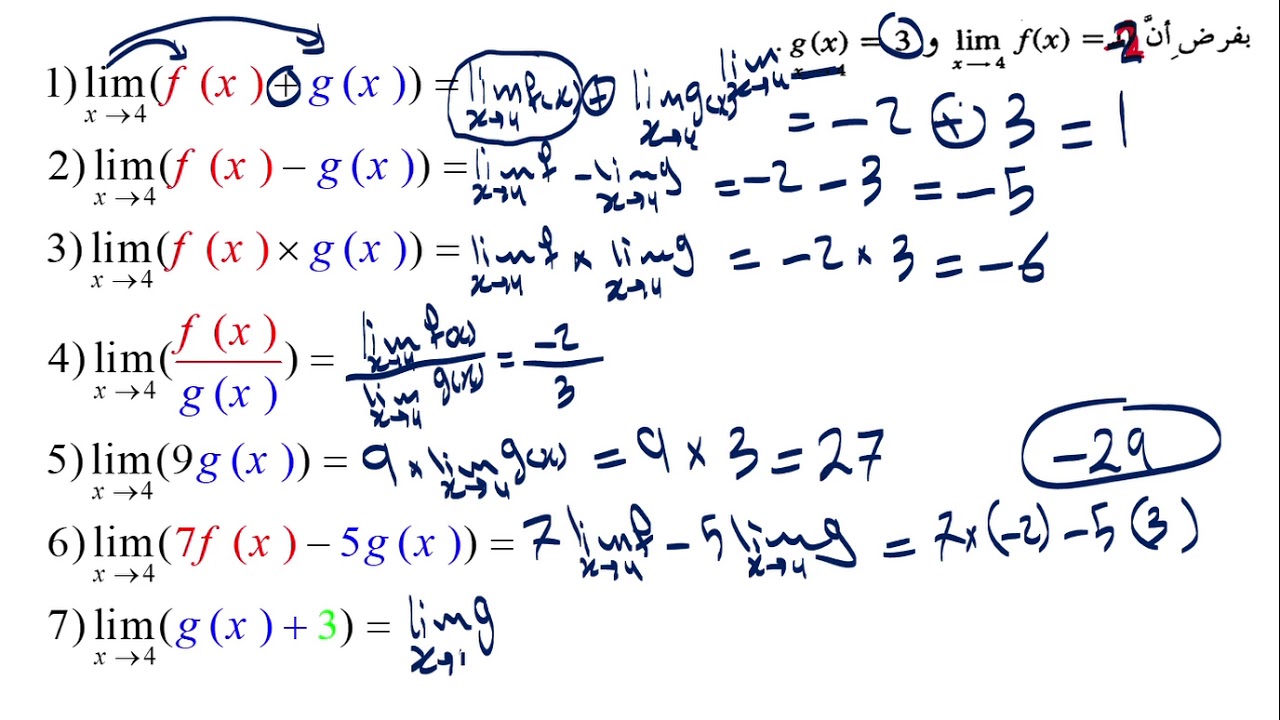 بفرض أنَّ lim x→4 f(x) = -2 و lim x→4 g(x) = 3
1) lim x→4 (f(x) + g(x)) = lim x→4 f(x) + lim x→4 g(x) = -2 + 3 = 1
2) lim x→4 (f(x) - g(x)) = lim x→4 f - lim x→4 g = -2 - 3 = -5
3) lim x→4 (f(x) × g(x)) = lim x→4 f × lim x→4 g = -2 × 3 = -6
4) lim x→4 (f(x)/g(x)) = lim x→4 f(x) / lim x→4 g(x) = -2/3
5) lim x→4 (9g(x)) = 9 × lim x→4 g(x) = 9 × 3 = 27
-29
6) lim x→4 (7f(x) - 5g(x)) = 7 lim x→4 f - 5 lim x→4 g = 7×(-2) - 5(3)
7) lim x→4 (g(x) + 3) = lim x→ g